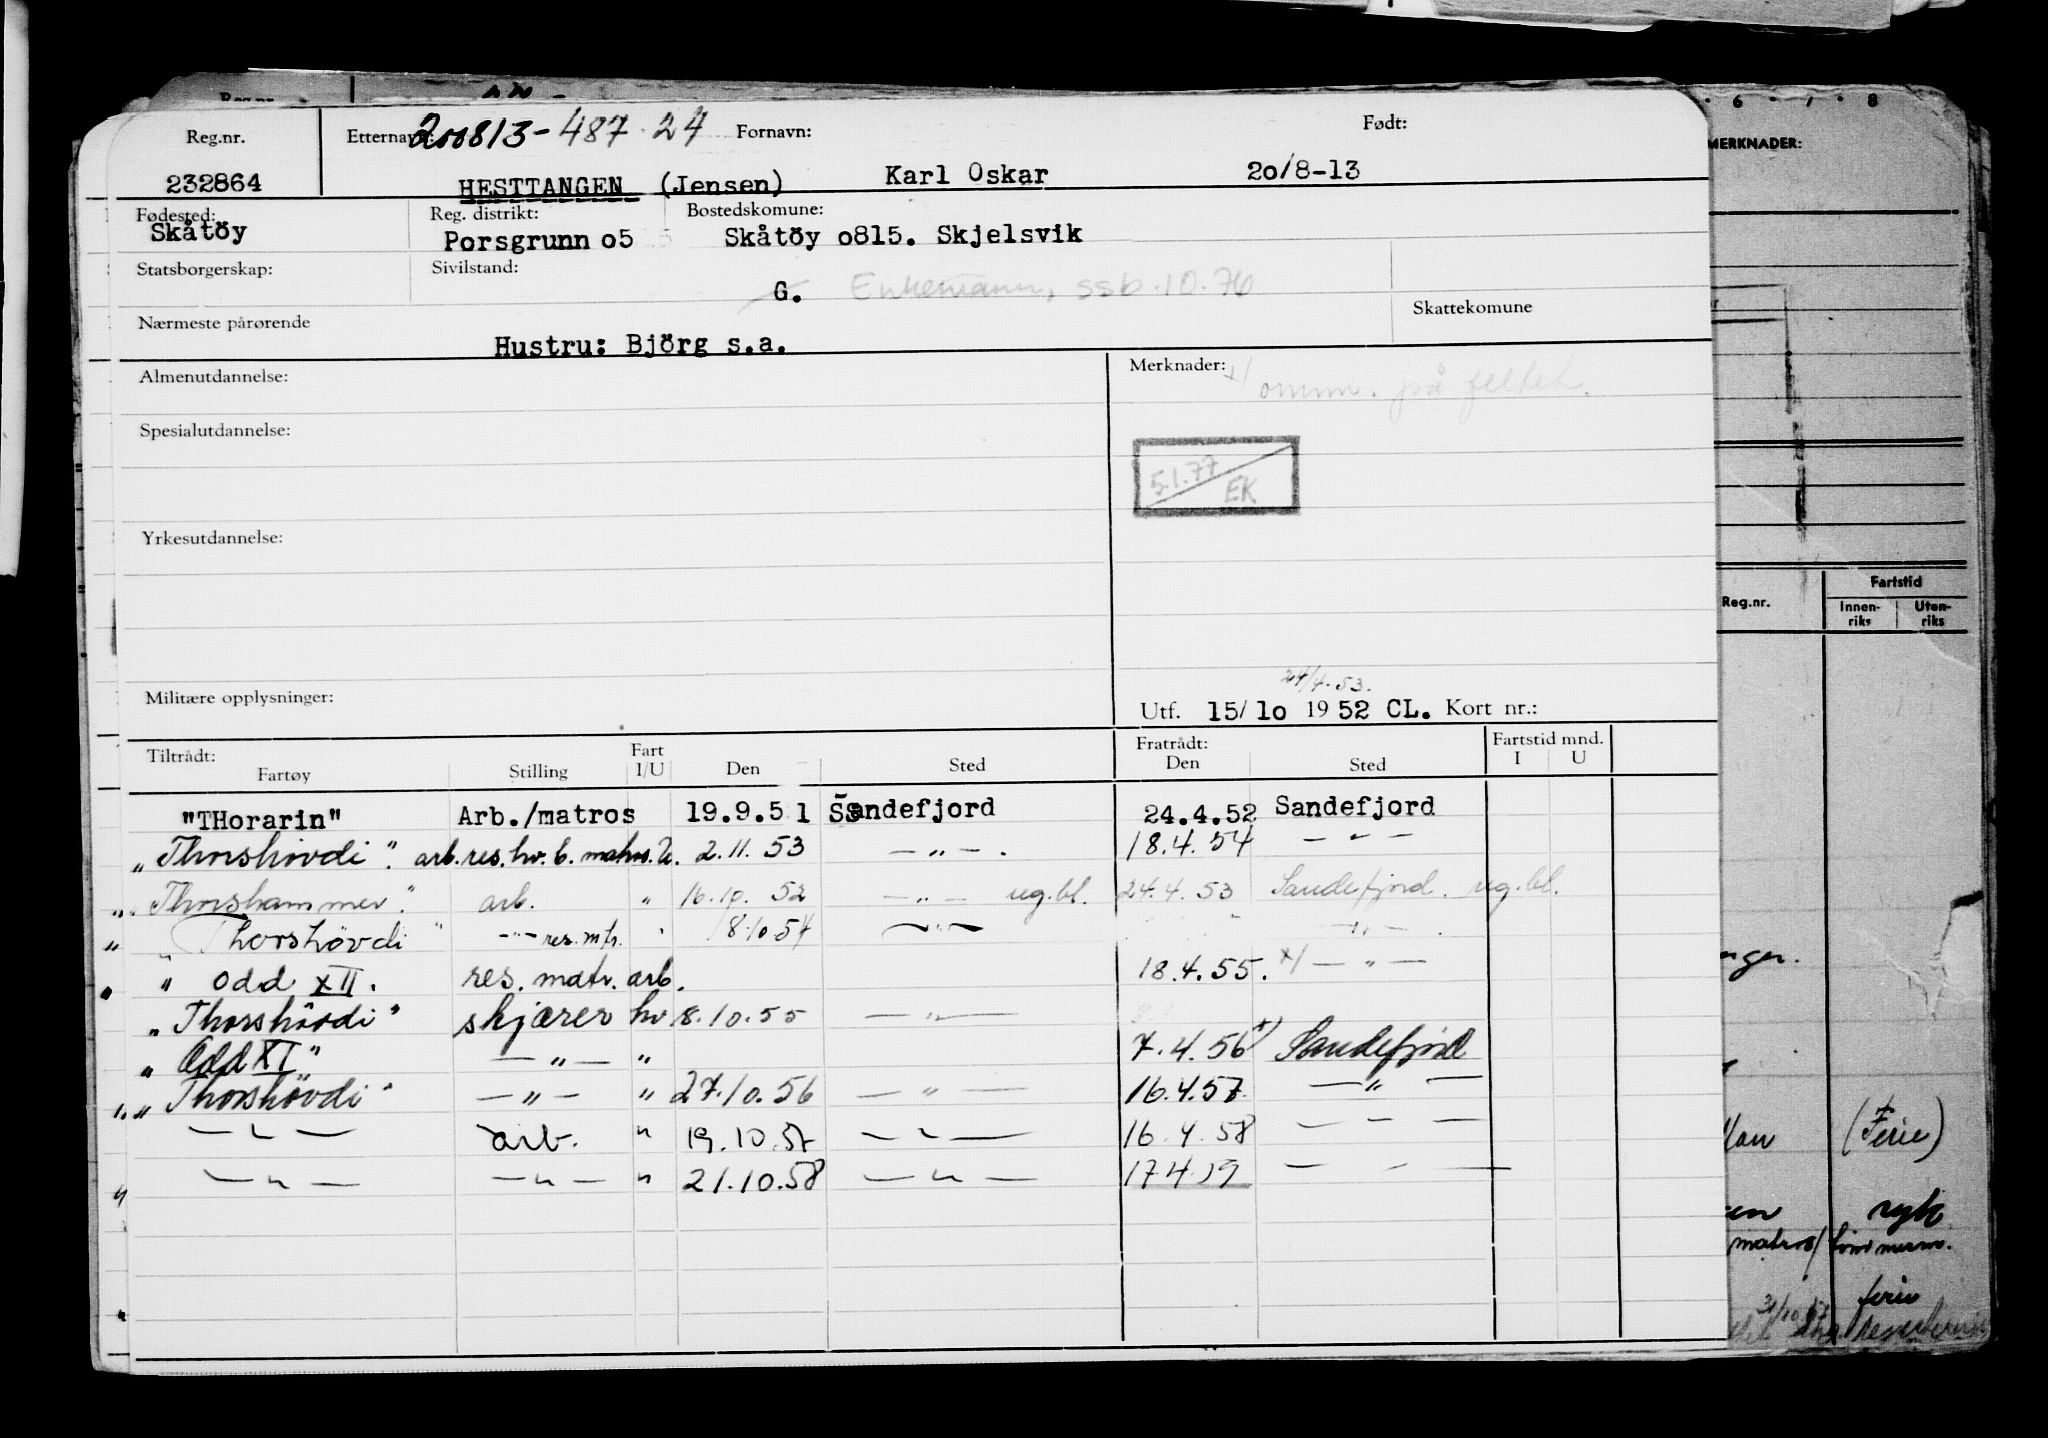 Reg.nr. Etternavn: 200813-487 24 Fornavn: Født:
232864 HESTTANGEN (Jensen) Karl Oskar 20/8-13
Fødested: Reg. distrikt: Bostedskomune:
Skåtöy Porsgrunn o5 Skåtöy o815. Skjelsvik
Statsborgerskap: Sivilstand:
G. Enkemann, ssb.10.76
Skattekomune
Nærmeste pårørende
Hustru: Björg s.a.
Almenutdannelse: Merknader:
x/ omm. på feltet.
Spesialutdannelse:
5.1.77/EK
Yrkesutdannelse:
24/4.53.
Militære opplysninger: Utf. 15/10 1952 CL. Kort nr.:
Tiltrådt: Fart Fratrådt: Fartstid mnd.
Fartøy Stilling I/U Den Sted Den Sted I U
"THorarin" Arb./matros 19.9.51 Sandefjord 24.4.52 Sandefjord
"Thorshövdi". arb.res.hv.b. matros. U. 2.11.53 — " — . 18.4.54 — " —
" Thorshammer". arb. " 16.10.52 — " — reg.bl. 24.4.53 Sandefjord. reg.bl.
" " Thorshövdi " — " — res. mtr. " 8.10.54 — " — — " — .
" " Odd XII. res. matr. arb. 18.4.55. x/ — " —
"Thorshövdi" skjærer hv 8.10.55 — " —
" Odd XI" — " — " 7.4.56 x/ Sandefjord
" "Thorshövdi" — " — " 27.10.56 — " — 16.4.57 — " —
— " — arb. " 19.10.57 — " — 16.4.58 — " —
" — " — — " — " 21.10.58 — " — 17.4.59 — " —
Reg.nr.
6 . 7 . 8
MERKNADER:
Fartstid
Reg.nr. Innen-riks Uten-riks
(Ferie)
matros/
ferie